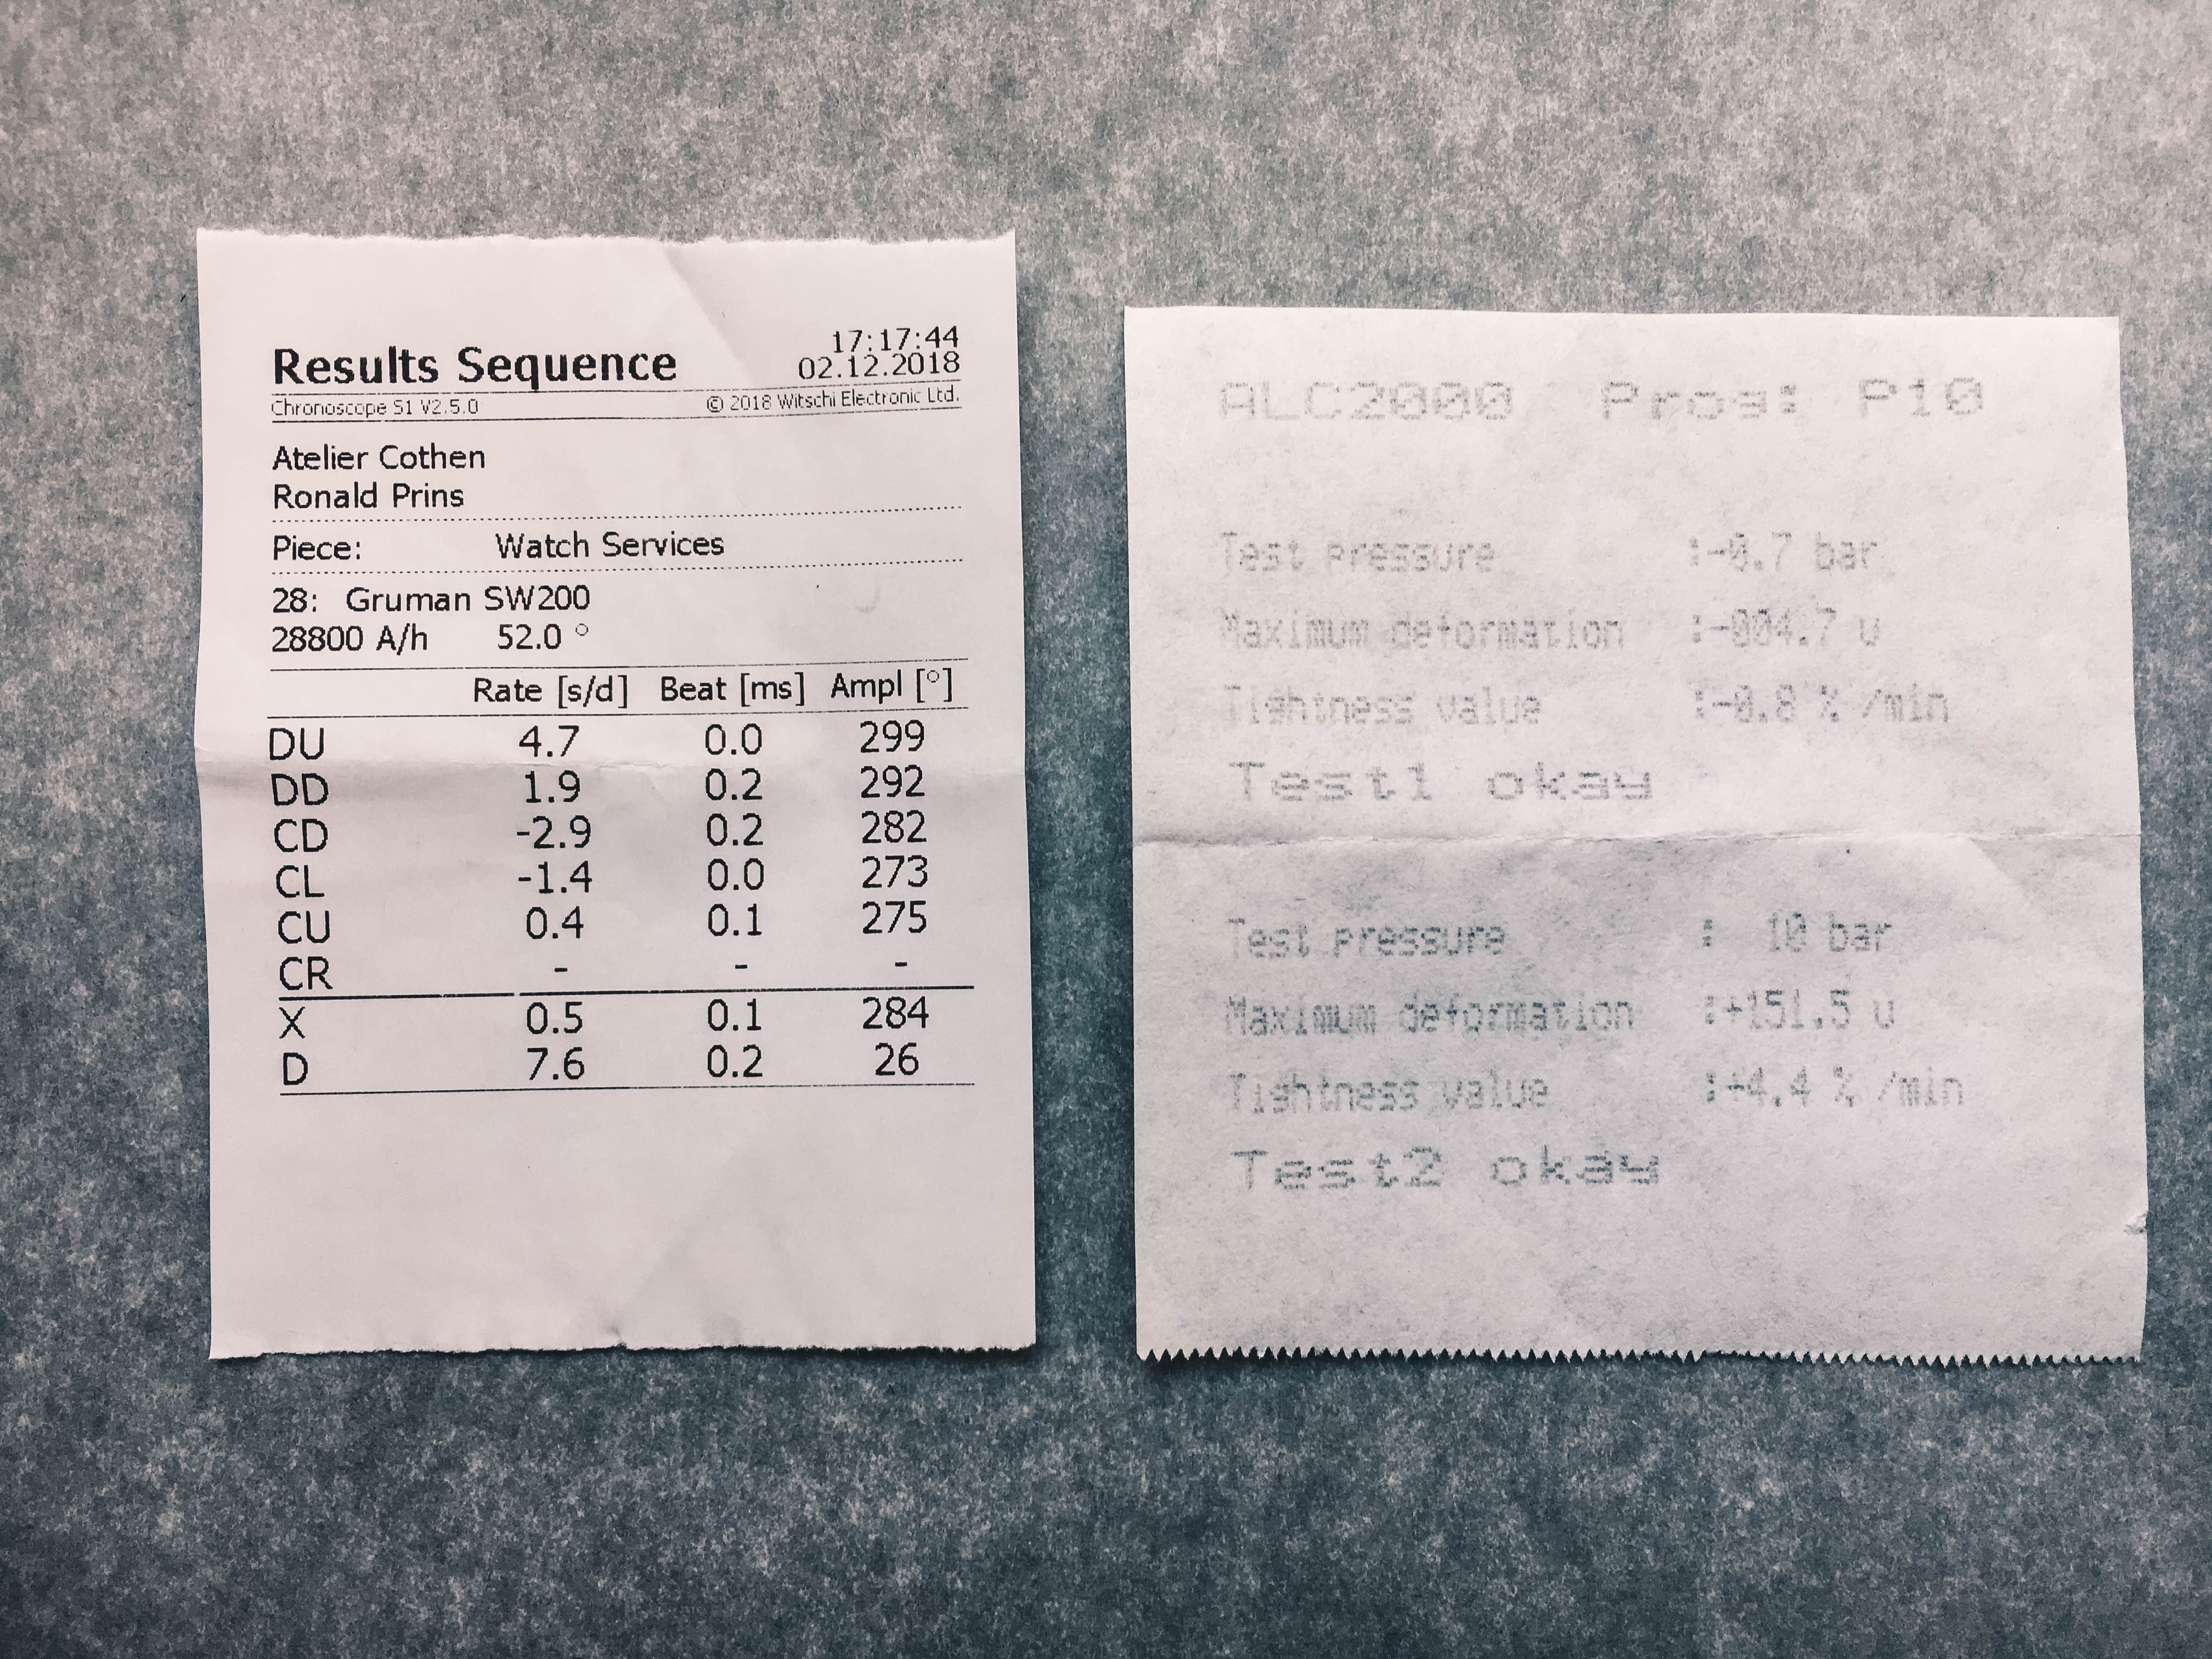 17:17:44
Results Sequence 02.12.2018
Chronoscope S1 V2.5.0 © 2018 Witschi Electronic Ltd.
Atelier Cothen
Ronald Prins
Piece: Watch Services
28: Gruman SW200
28800 A/h 52.0 °
Rate [s/d] Beat [ms] Ampl [°]
DU 4.7 0.0 299
DD 1.9 0.2 292
CD -2.9 0.2 282
CL -1.4 0.0 273
CU 0.4 0.1 275
CR - - -
X 0.5 0.1 284
D 7.6 0.2 26
ALC2000 Prog: P10
Test pressure :-0.7 bar
Maximum deformation :-004.7 u
Tightness value :-0.8 % /min
Test1 okay
Test pressure : 10 bar
Maximum deformation :+151.5 u
Tightness value :+4.4 % /min
Test2 okay